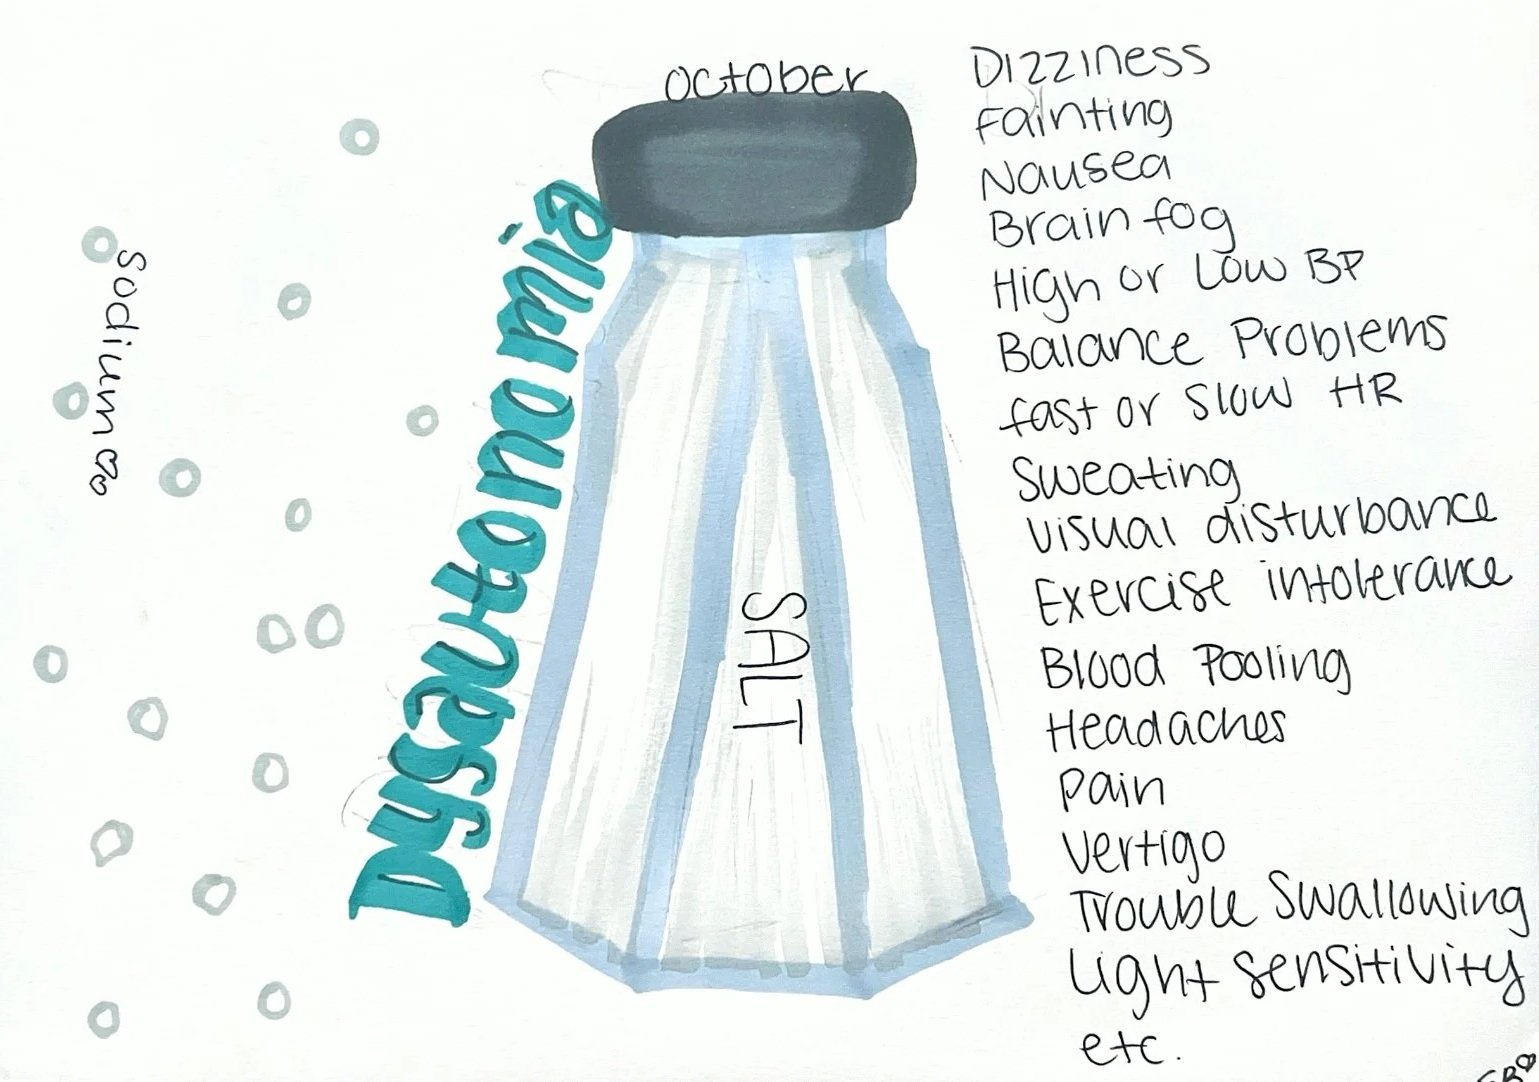 october
Dysautonomia
Sodium
SALT
Dizziness
Fainting
Nausea
Brain fog
High or Low BP
Balance Problems
fast or Slow HR
Sweating
Visual disturbance
Exercise intolerance
Blood Pooling
Headaches
Pain
Vertigo
Trouble Swallowing
Light Sensitivity
etc.